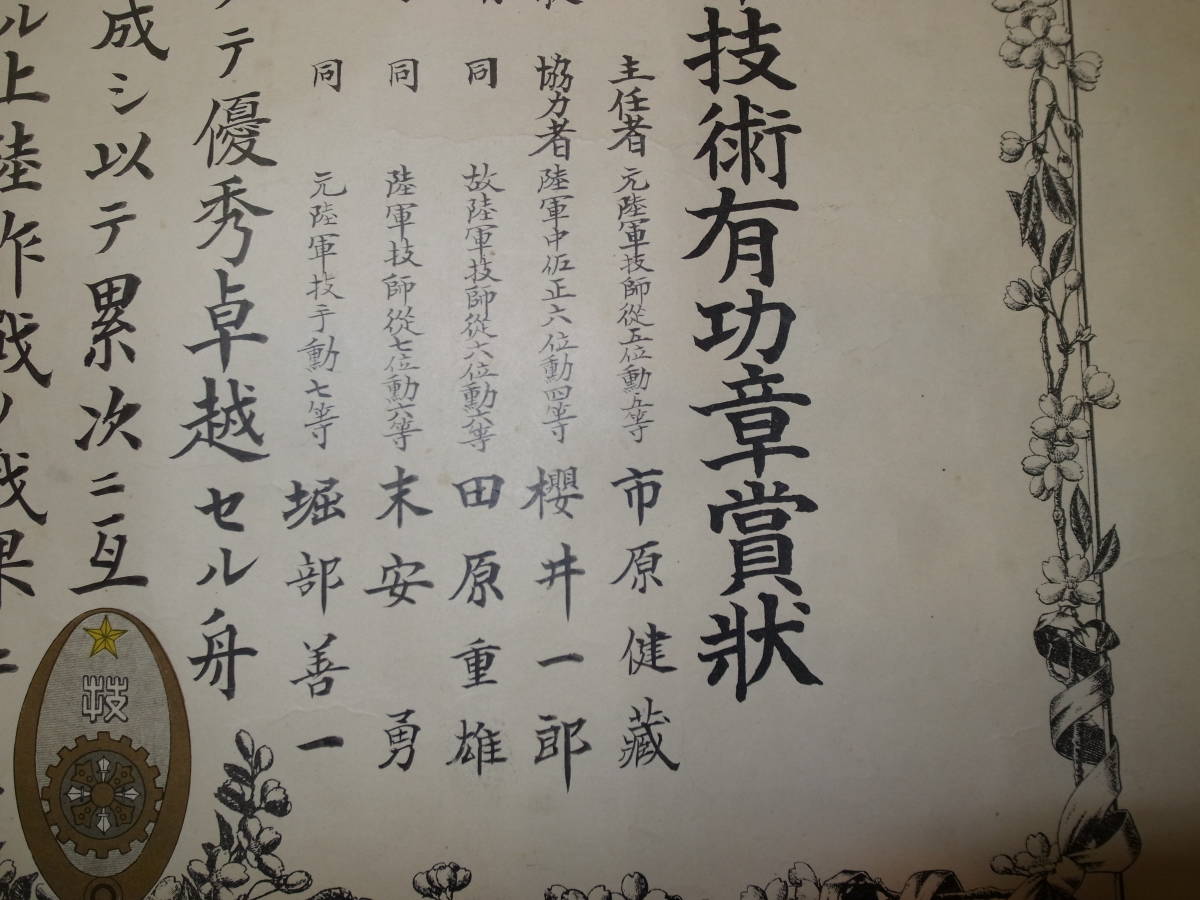 技術有功章賞狀
主任者 元陸軍技師從五位勳五等 市原健藏
協力者 陸軍中佐正六位勳四等 櫻井一郎
同 故陸軍技師從六位勳六等 田原重雄
同 陸軍技師從七位勳六等 末安勇
同 元陸軍技手勳七等 堀部善一
テ優秀卓越セル舟
成シ以テ累次ニ亙
ル上陸作戰ノ戰果
技